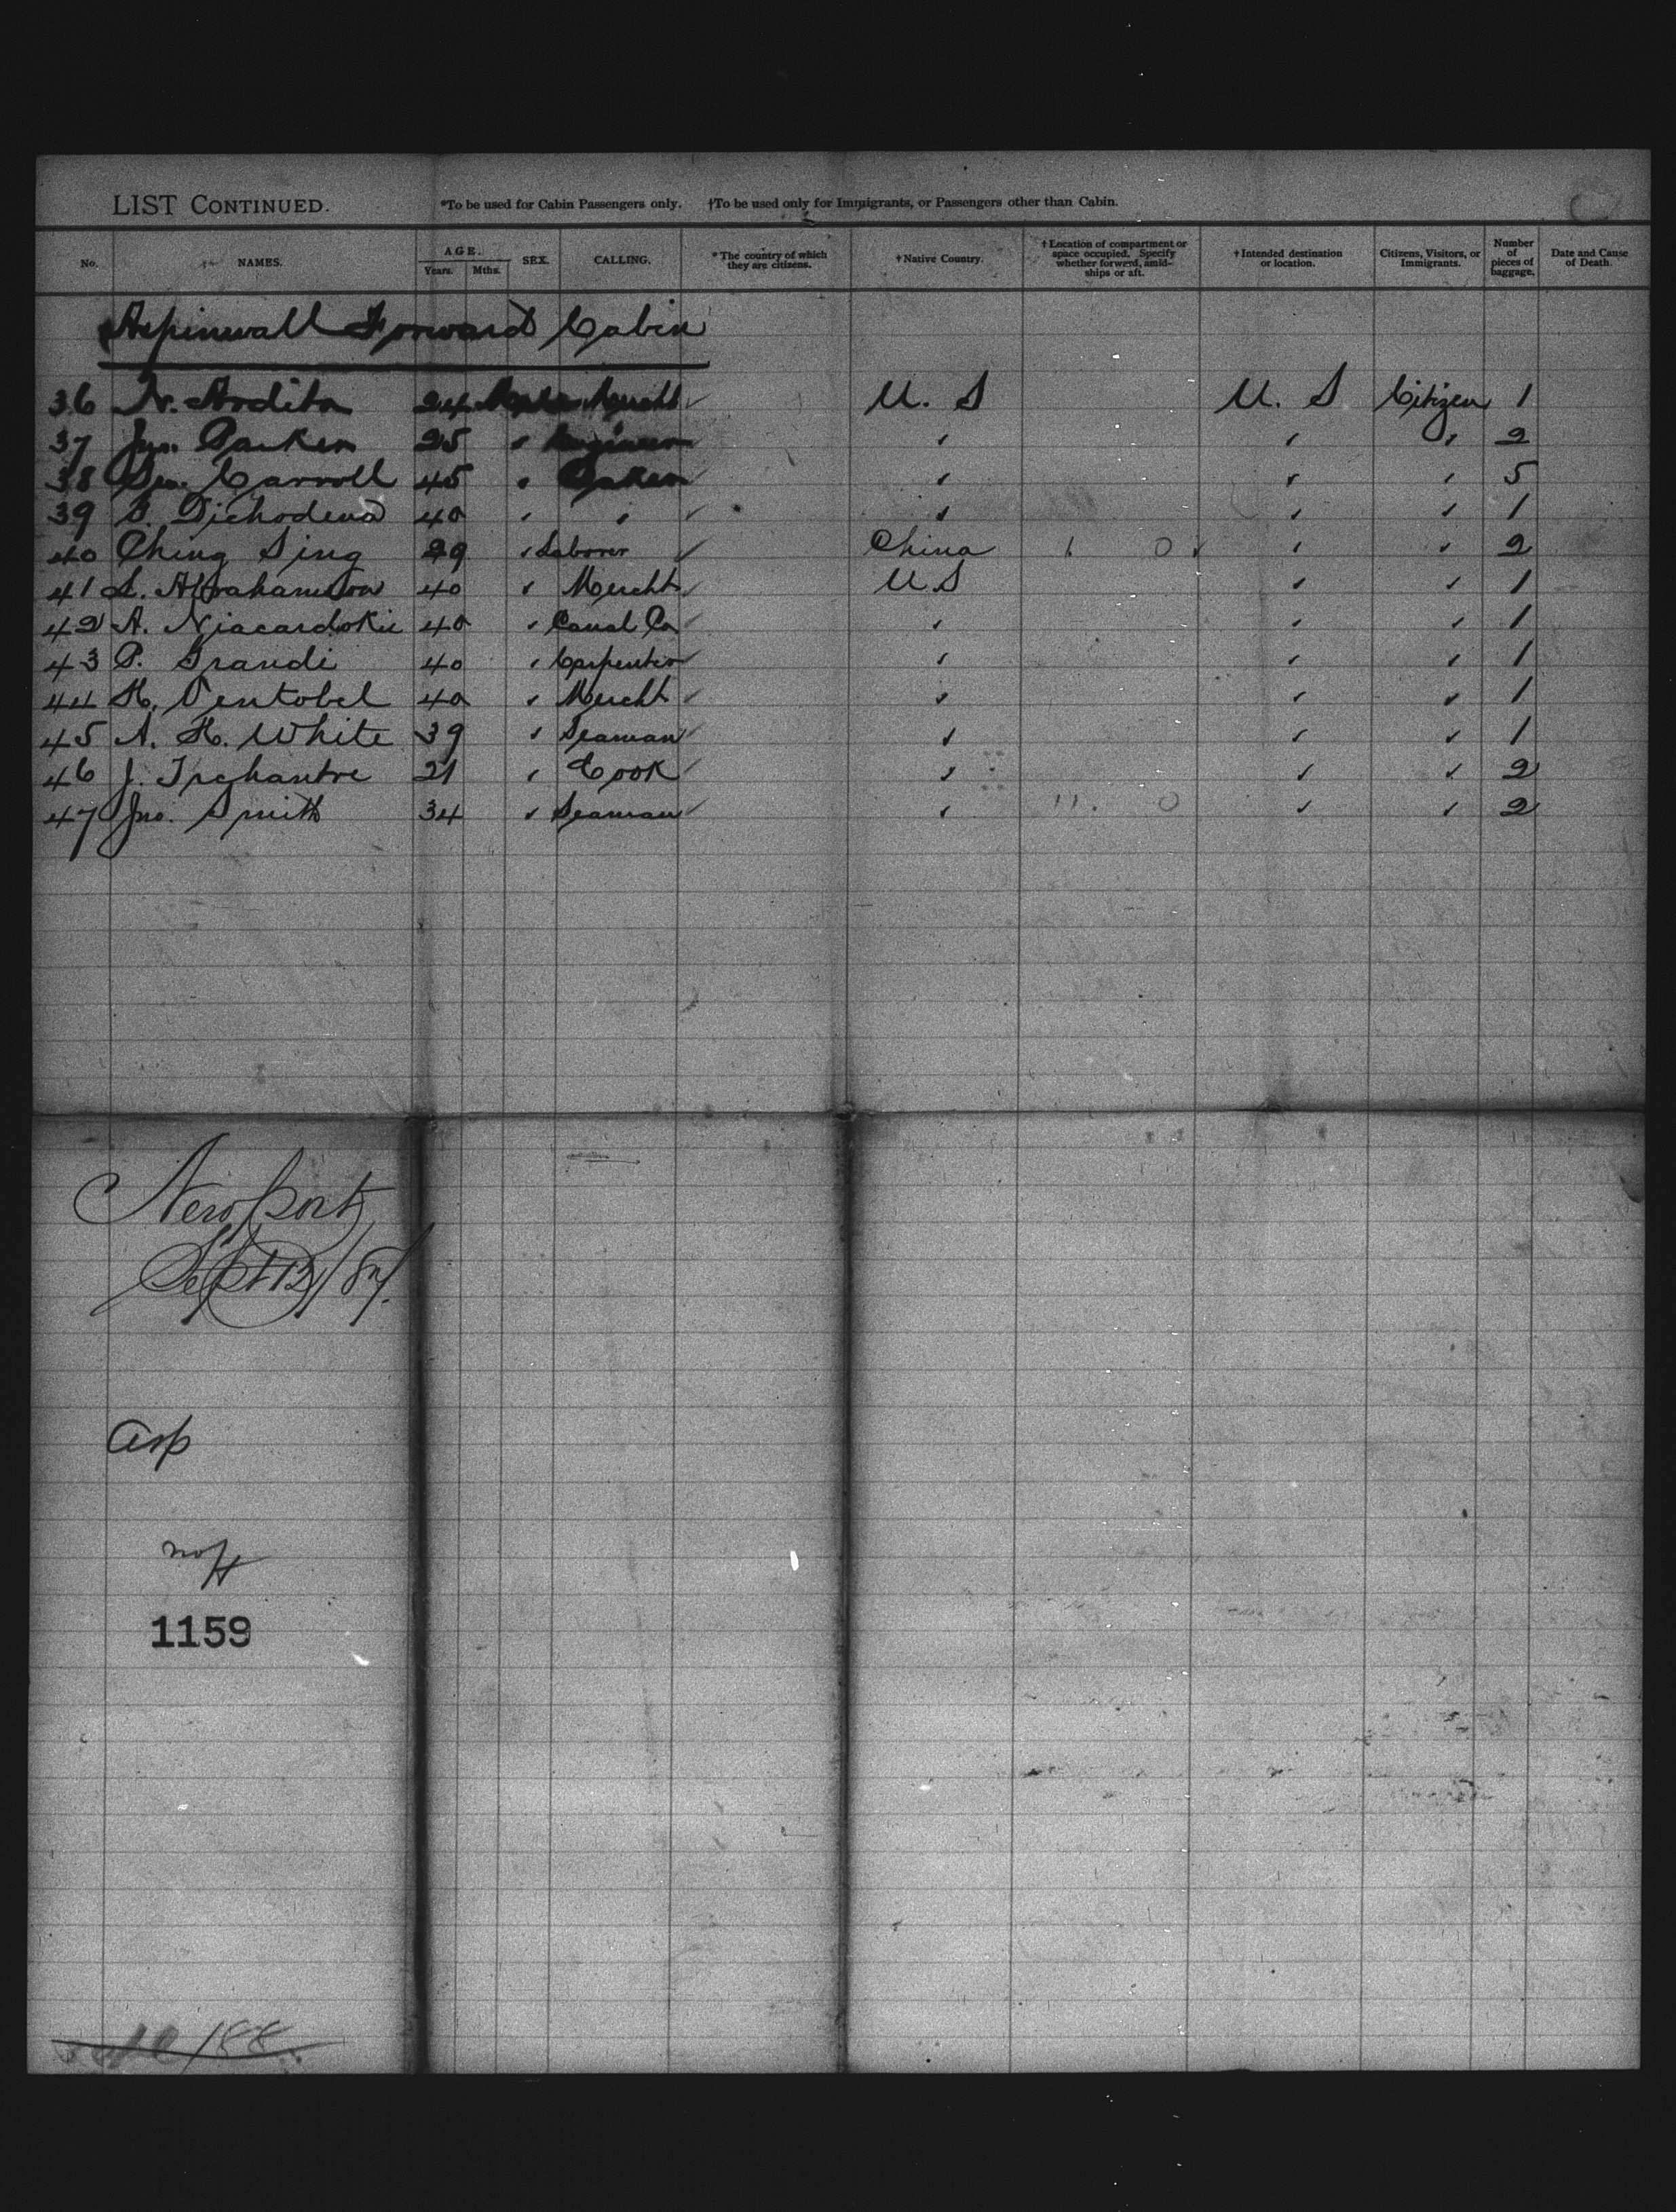 LIST CONTINUED. *To be used for Cabin Passengers only. †To be used only for Immigrants, or Passengers other than Cabin.
No. NAMES. AGE. Years. Mths. SEX. CALLING. *The country of which they are citizens. †Native Country. †Location of compartment or space occupied. Specify whether forward, amidships or aft. †Intended destination or location. Citizens, Visitors, or Immigrants. Number of pieces of baggage. Date and Cause of Death.
Aspinwall Forward Cabin
36 N. Andita 24 Male Mercht U. S U. S Citizen 1
37 Jno. Parker 25 " Engineer " " " 2
38 Geo. Carroll 45 " Baker " " " 5
39 40 " " " " " 1
40 Ching Sing 29 " Laborer China " " 2
41 L. Abrahamson 40 " Mercht U S " " 1
42 A. 40 " Canal Co " " " 1
43 P. Grandi 40 " Carpenter " " " 1
44 H. Pentobel 40 " Mercht " " " 1
45 A. H. White 39 " Seaman " " " 1
46 J. 21 " Cook " " " 2
47 Jno. Smith 34 " Seaman " " " 2
Newport
Sept 12/87.
Asp
1159
188